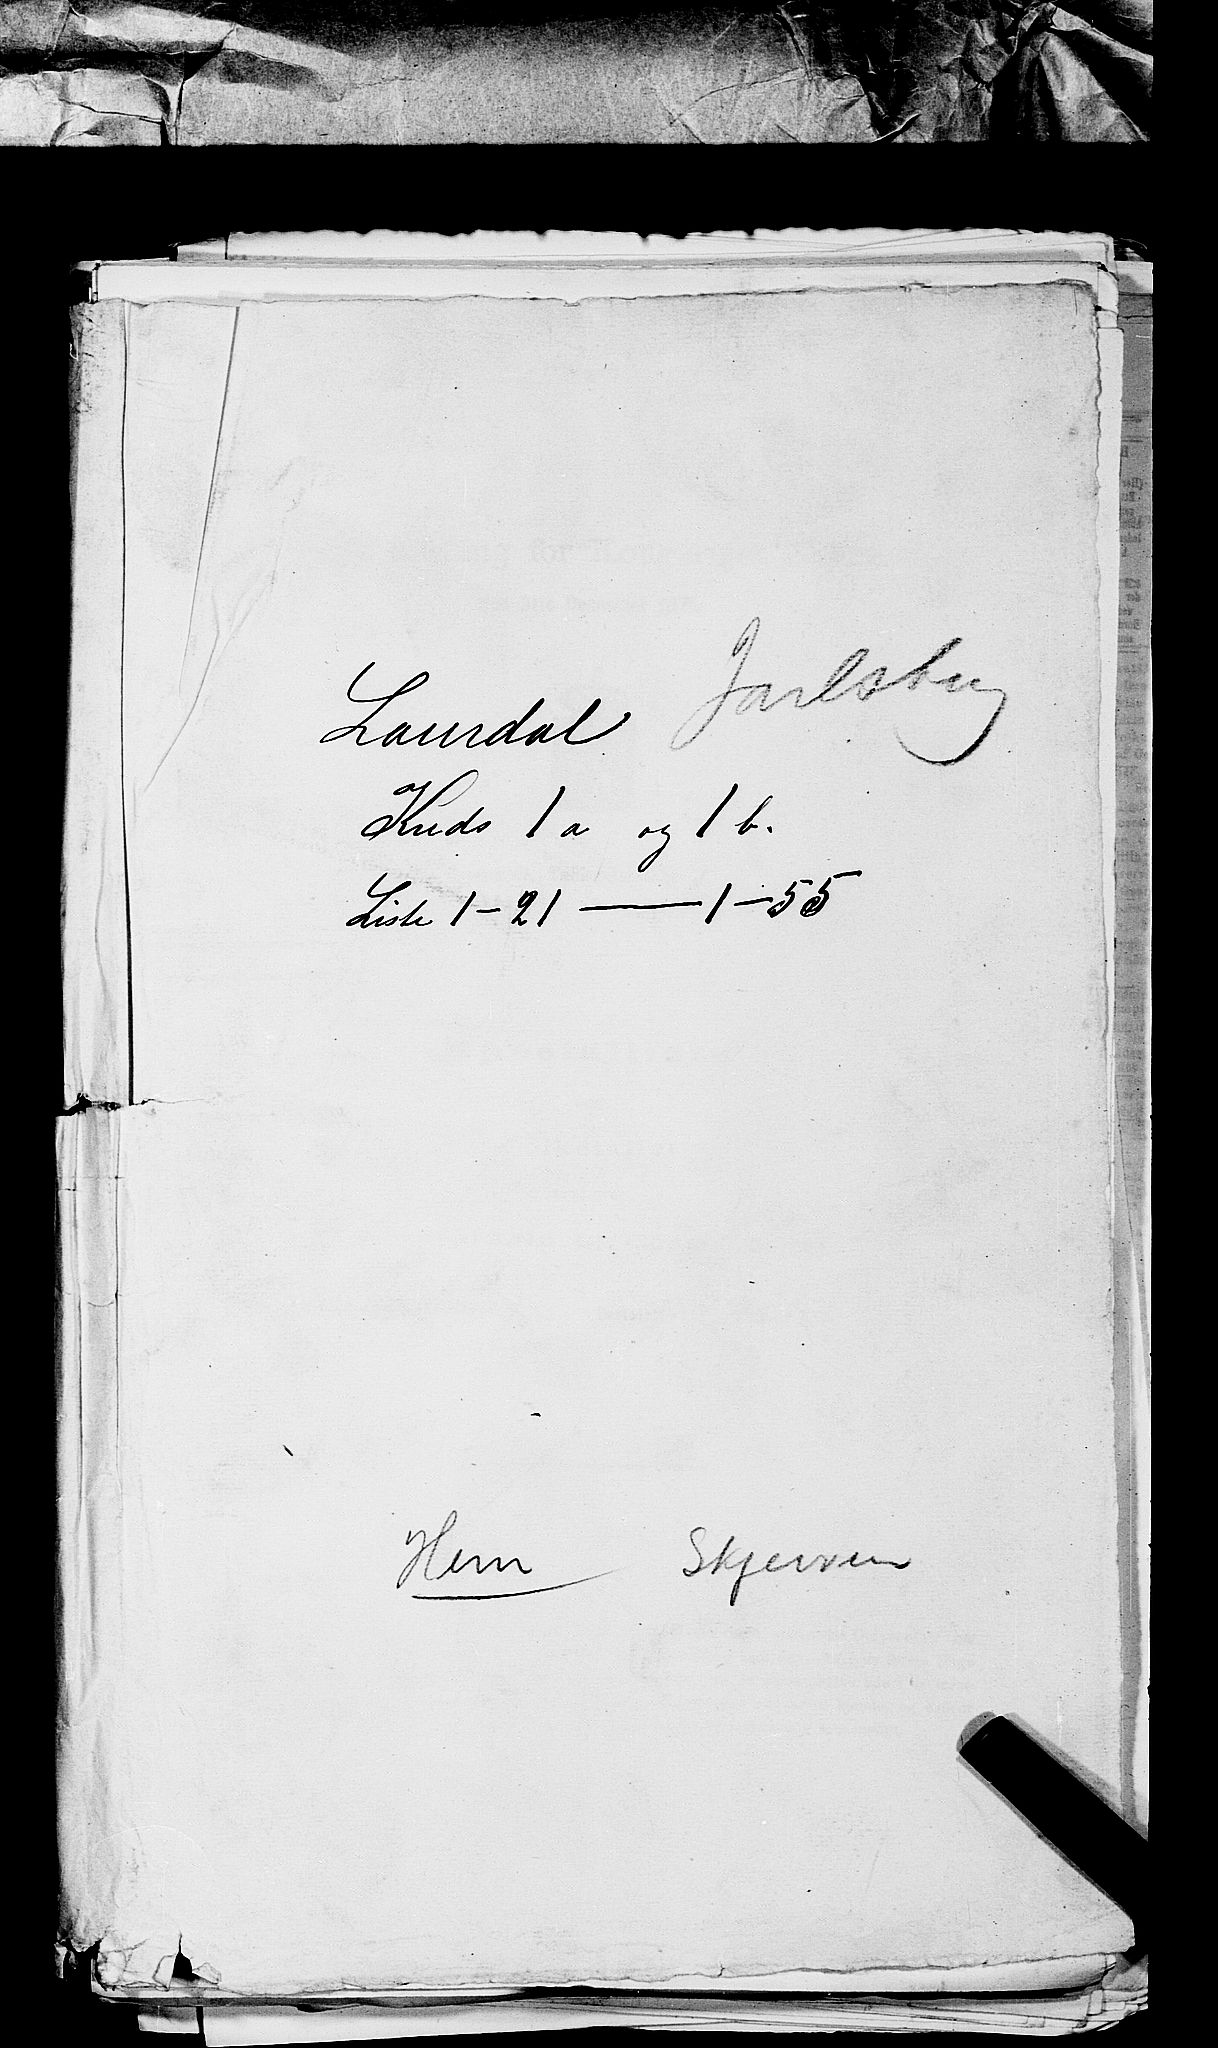 Laurdal Jarlsberg
Kreds 1a og 1 b.
Liste 1-21 — 1-55
Hem Skjerven